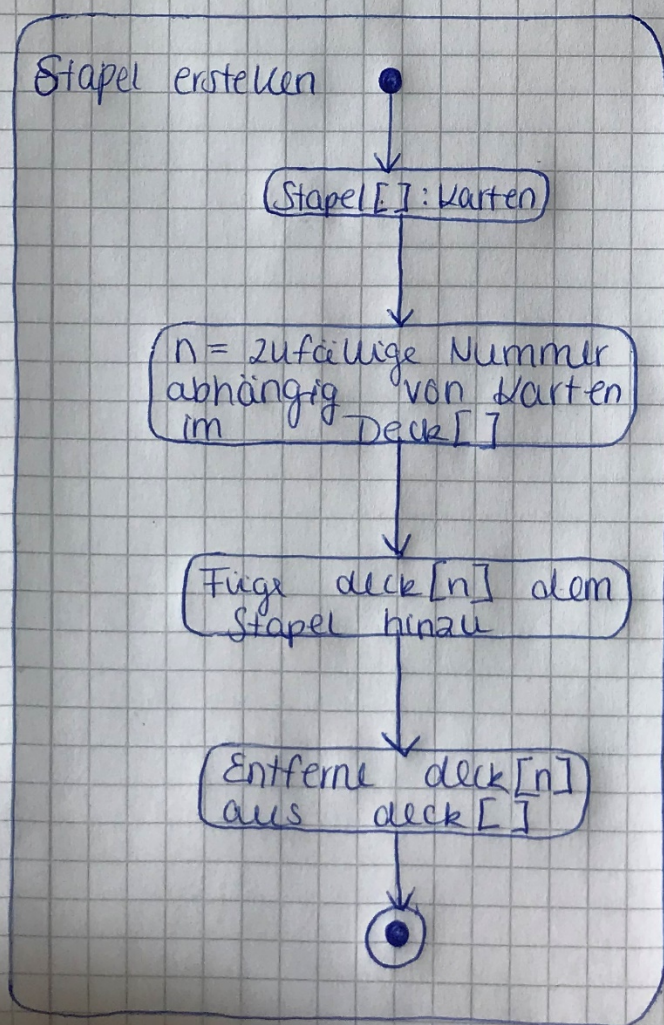 Stapel erstellen
Stapel[]:Karten
n = zufällige Nummer
abhängig von Karten
im Deck[]
Füge deck[n] dem
Stapel hinzu
Entferne deck[n]
aus deck[]